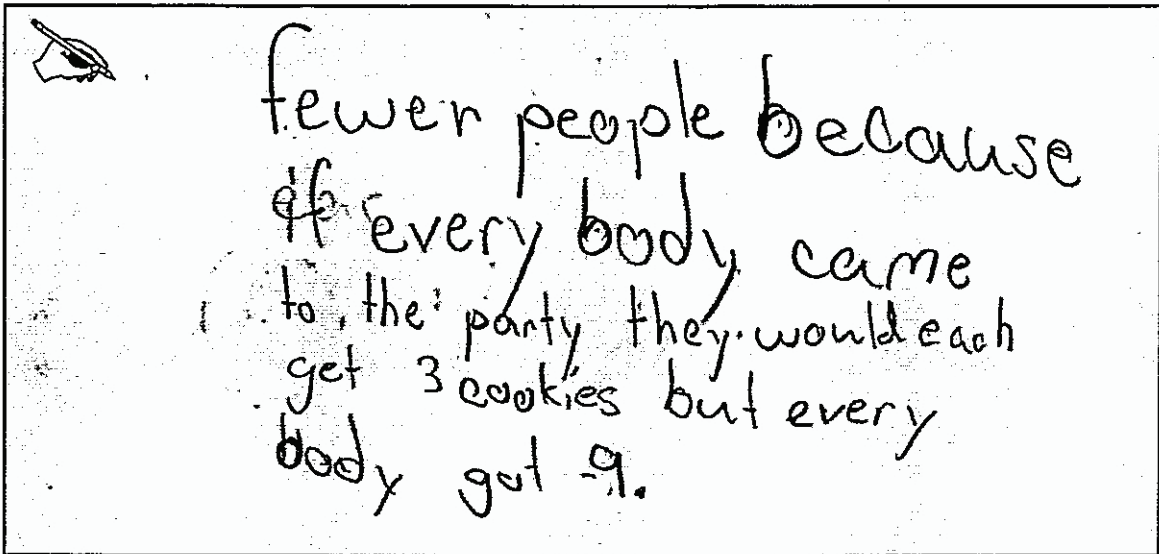 fewer people because
if every body came
to the party they would each
get 3 cookies but every
body got 9.